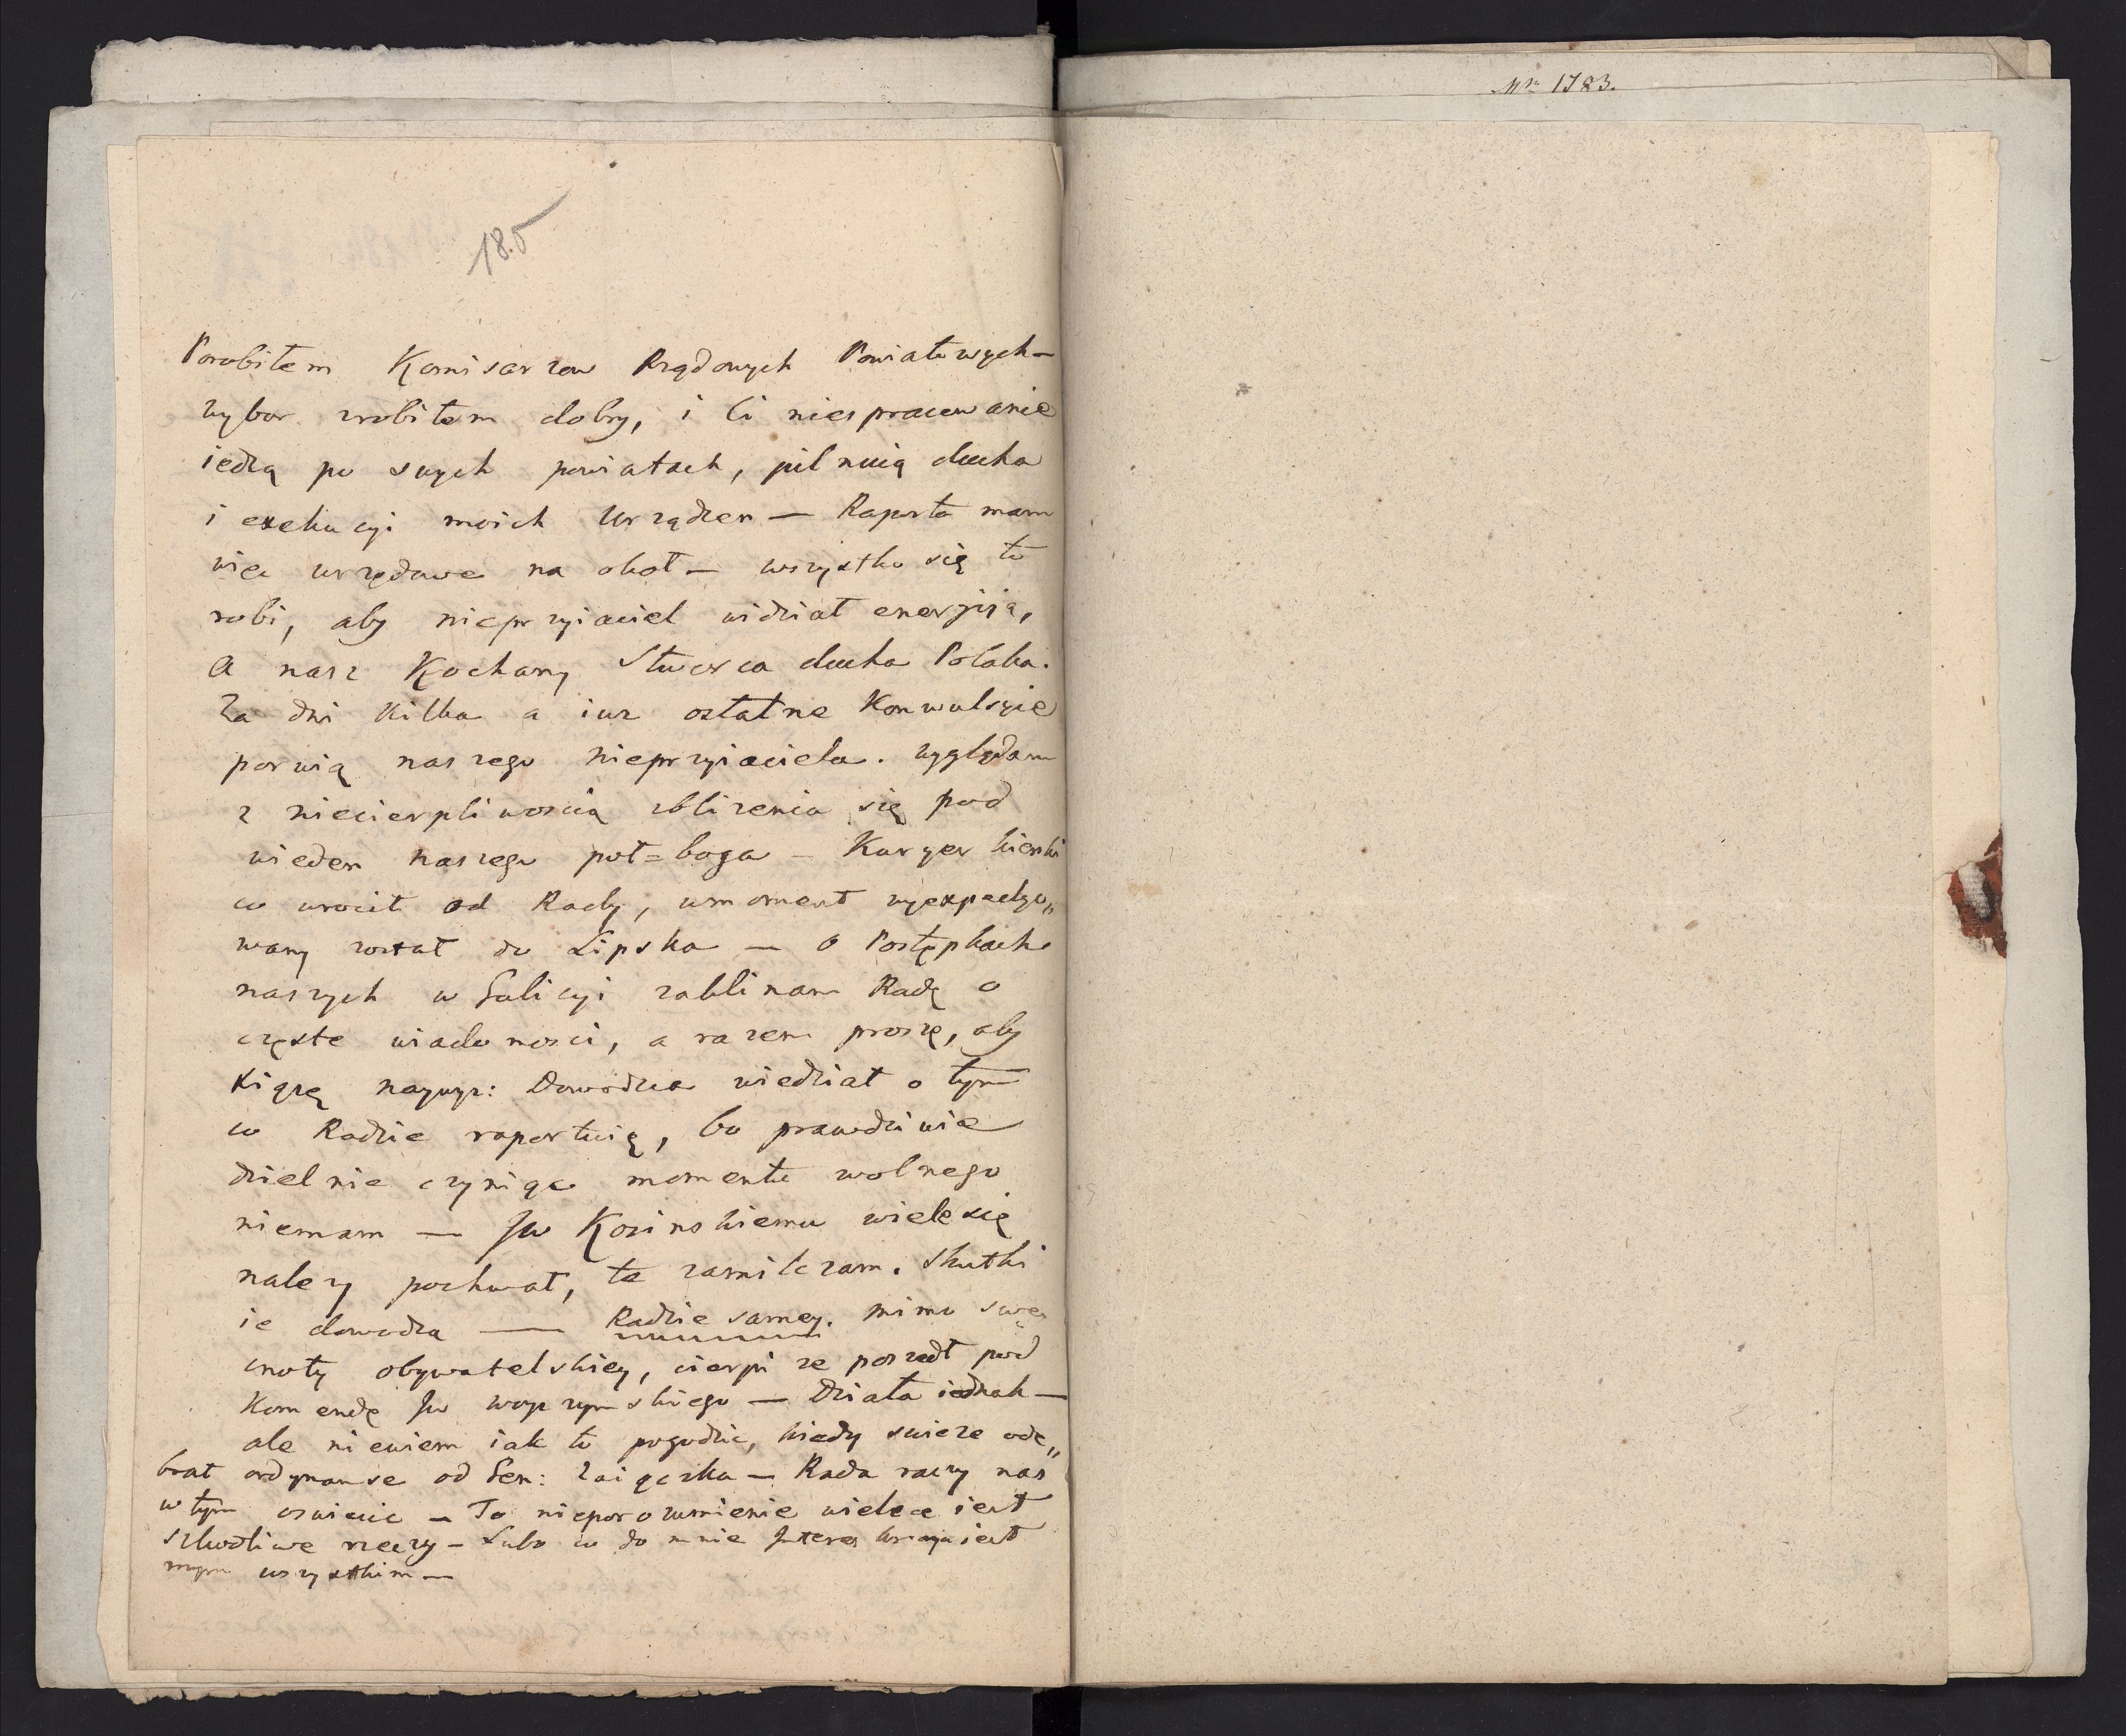 185
Nro 1783.
Porobiłem Komisarzow Rządowych Powiatowych —
wybor zrobiłem dobry, i ci niespracowanie
iedżą po swych powiatach, pilnuią ducha
i exekucyi moich Urządzen — Raporta mam
więc urzędowe na okoł — wszystko się to
robi, aby nieprzyiaciel widział energiią,
A nasz Kochany Stworca ducha Polaka.
Za dni kilka a iuz ostatne Konwulsyie
porwią naszego nieprzyiaciela. wyglądam
z niecierpliwoscią zblizenia się pod
wieden naszego puł=boga — Kuryer
co wrocił od Rady, wmoment wyexpedyo„
wany został do Lipska — O Postępkach
naszych w Galicyi zaklinam Radę o
częste wiadomosci, a razem proszę, aby
Xiążę naywyz: Dowodzca wiedział o tym
co Radzie raportuię, bo prawdziwie
dzielnie czyniąc momentu wolnego
niemam — Jw Kosinskiemu wiele się
nalezy pochwał, te zamilczam. Skutki
ie dowodzą — Radzie samey. mimo swey
cnoty obywatelskiey, cierpi ze poszedł pod
Komendę Jw Woyczynskiego — Działa iednak —
ale niewiem iak to pogodzic, kiedy swieze ode„
brał ordynanse od Gen: Zaiączka — Rada raczy nas
w tym oswiecic — To nieporozumienie wielce iest
szkodliwe rzeczy — Lubo co do mnie Interes kraju iest
mym wszystkim —